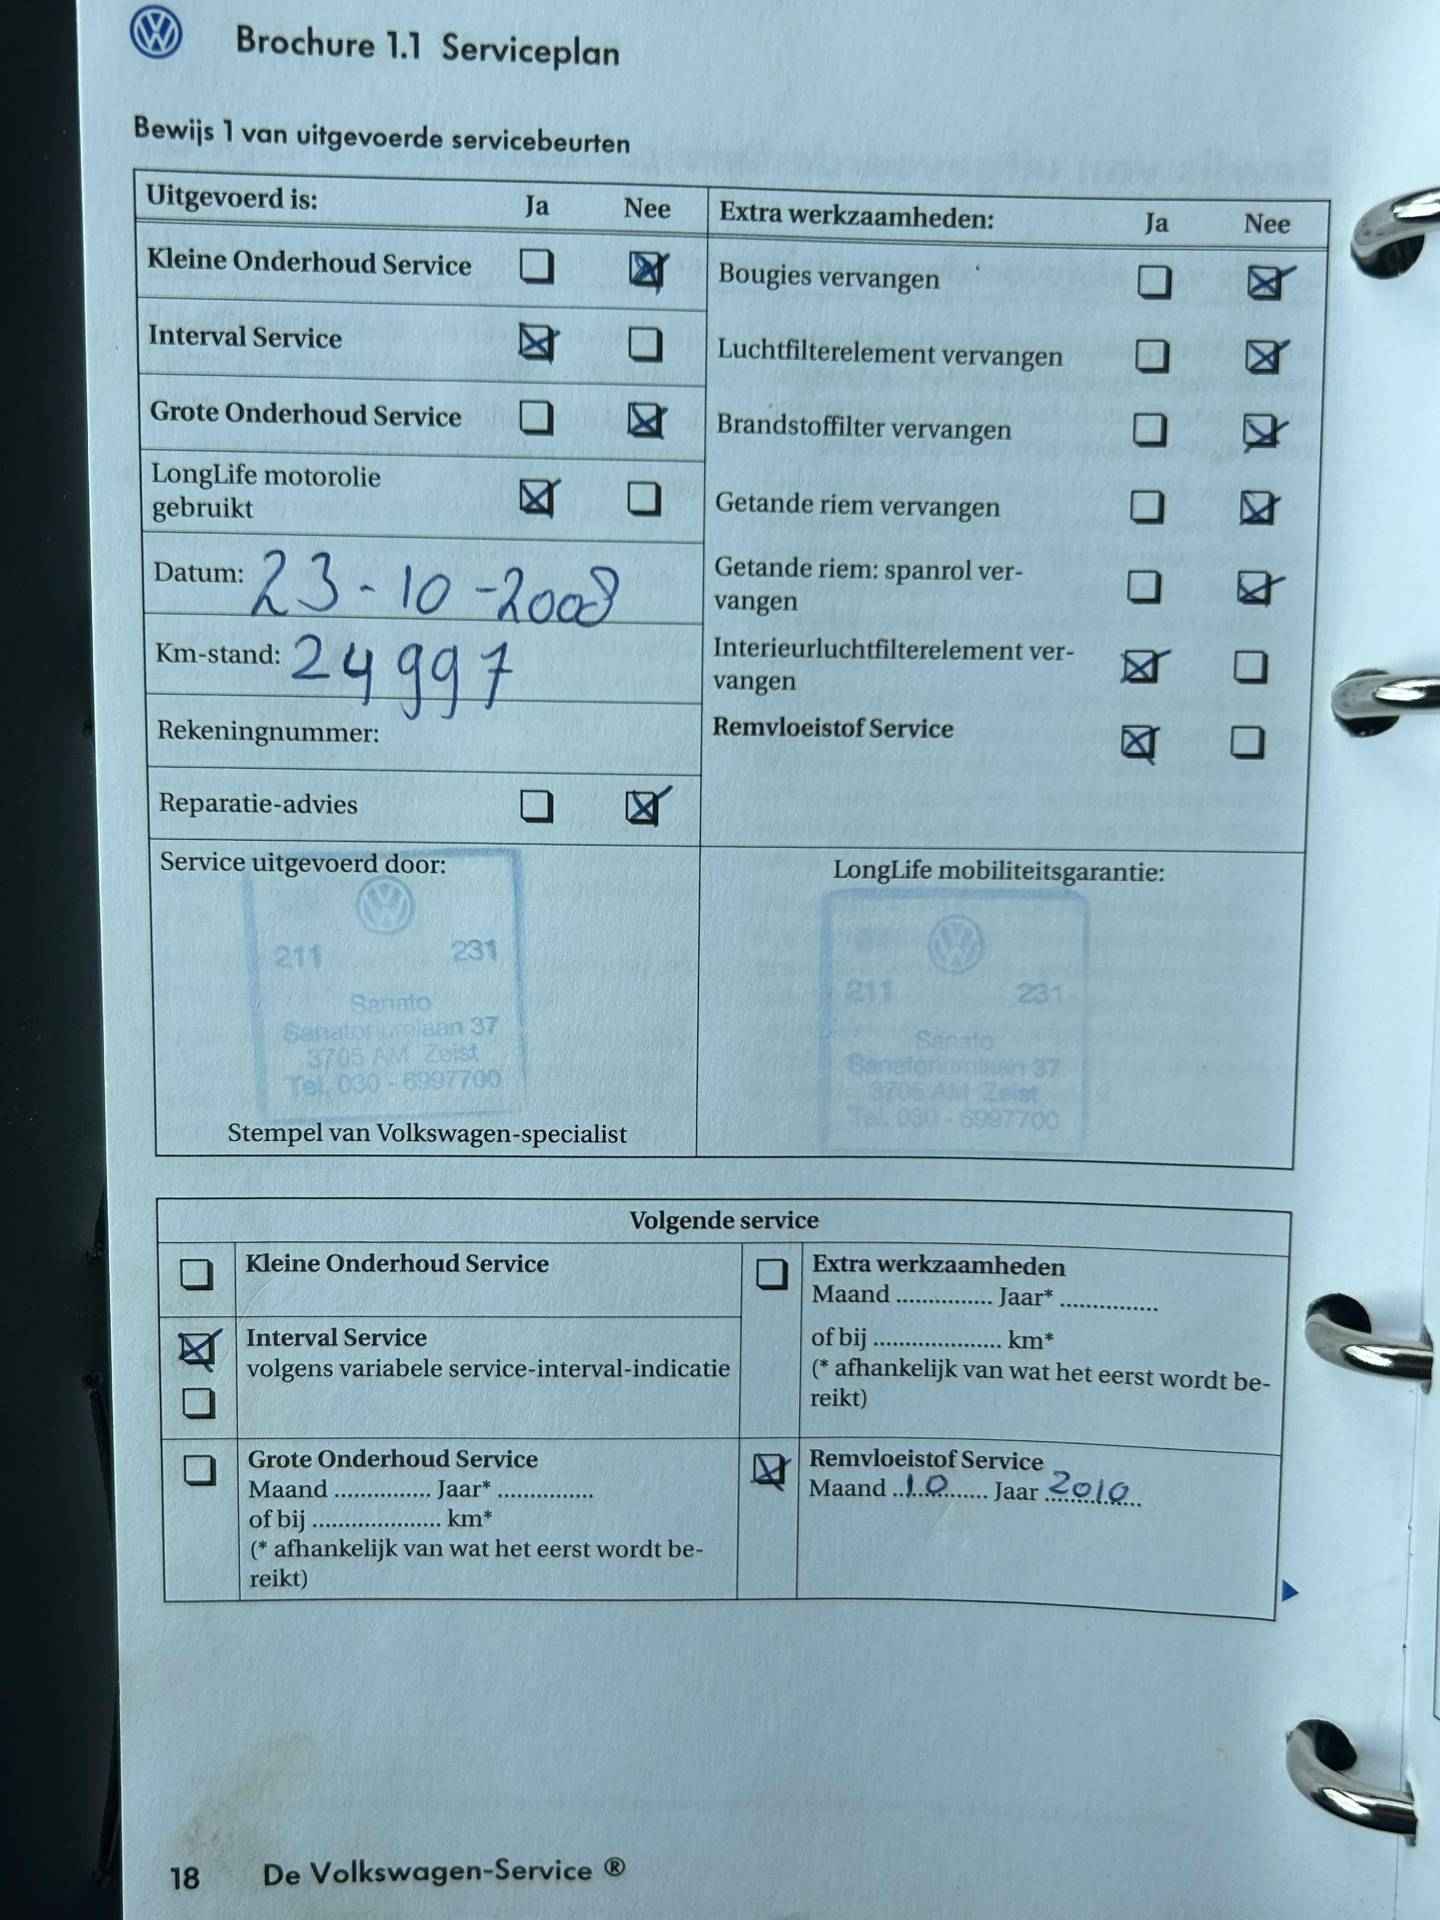 Brochure 1.1 Serviceplan
Bewijs 1 van uitgevoerde servicebeurten
Uitgevoerd is: Ja Nee
Kleine Onderhoud Service
Interval Service
Grote Onderhoud Service
LongLife motorolie
gebruikt
Datum: 23-10-2008
Km-stand: 24997
Rekeningnummer:
Reparatie-advies
Extra werkzaamheden: Ja Nee
Bougies vervangen
Luchtfilterelement vervangen
Brandstoffilter vervangen
Getande riem vervangen
Getande riem: spanrol ver-
vangen
Interieurluchtfilterelement ver-
vangen
Remvloeistof Service
Service uitgevoerd door:
211 231
Sanato
Sanatoriumlaan 37
3705 AM Zeist
Tel. 030 - 6997700
Stempel van Volkswagen-specialist
LongLife mobiliteitsgarantie:
211 231
Sanato
Sanatoriumlaan 37
3705 AM Zeist
Tel. 030 - 6997700
Volgende service
Kleine Onderhoud Service
Interval Service
volgens variabele service-interval-indicatie
Grote Onderhoud Service
Maand .............. Jaar* ..............
of bij ................... km*
(* afhankelijk van wat het eerst wordt be-
reikt)
Extra werkzaamheden
Maand .............. Jaar* ..............
of bij ................... km*
(* afhankelijk van wat het eerst wordt be-
reikt)
Remvloeistof Service
Maand 10 Jaar 2010
18 De Volkswagen-Service ®